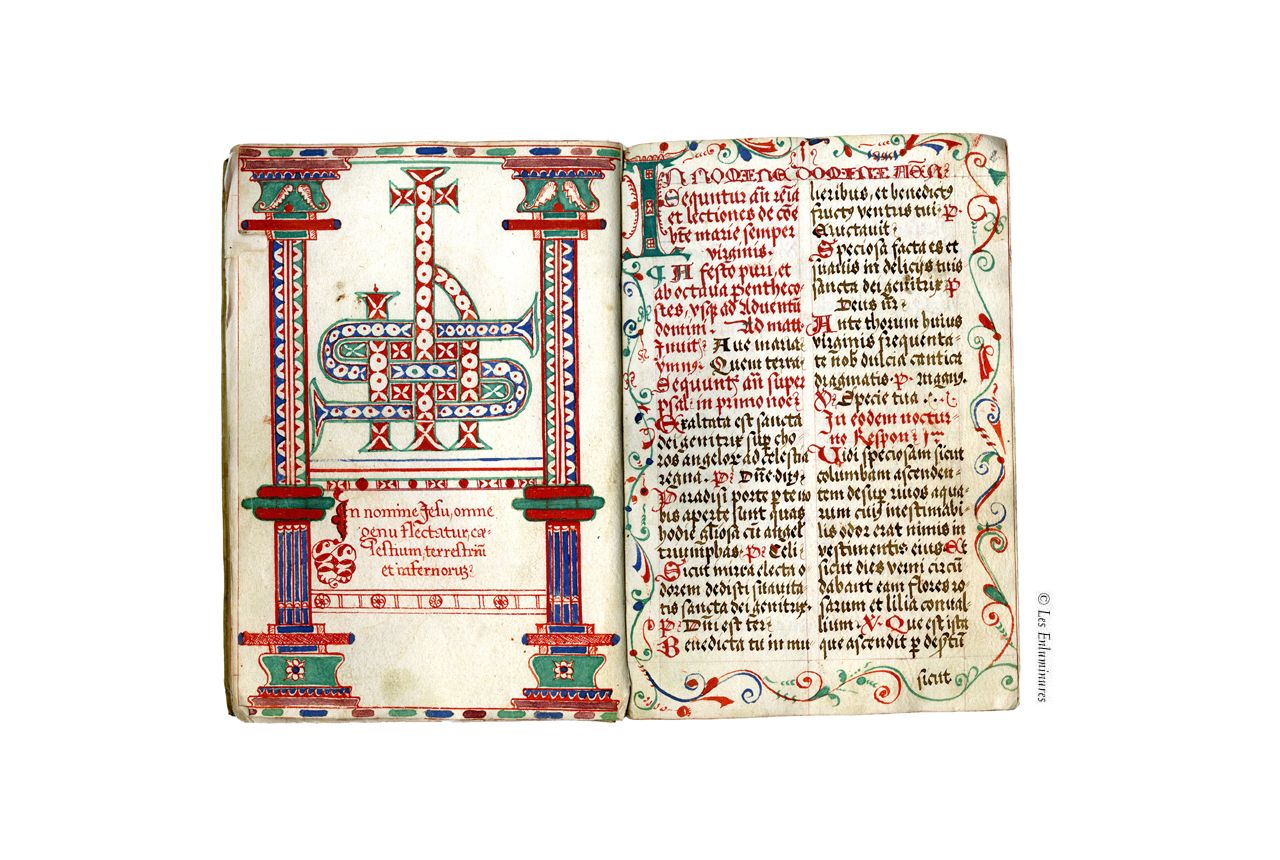 In nomine Jesu, omne
genu flectatur, cæ-
lestium, terrestriū
et infernorum
IN NOMINE DOMINE
Sequntur añ re͞ia
et lectiones de cōe
bt̄e marie semper
virginis.
¶ A festo puri, et
ab octava penthecos-
tes, usq̄ ad Adventū
domini. Ad matt
Invit Ave maria
ymnꝰ Quem terra
Sequunt añ super
psal in primo noc
Exaltata est sancta
dei genitrix sup̄ cho
ros angelor ad celestia
regna. P. Dñe dñs
Paradisi porte p te no
bis aperte sunt quas
hodie gl̄iosa cū angel
triumphas. P. Celi
Sicut mirra electa o
dorem dedisti suavita
tis sancta dei genitrix
P. Dñi est ter
Benedicta tu in mu
lieribus, et benedictꝰ
fructꝰ ventris tui. P.
Eructavit
Speciosa facta es et
suavis in delicijs tuis
sancta dei genitrix P
Deus nr̄
Ante thorum huius
virginis frequenta-
te nob dulcia cantica
dragmatis. P. magnꝰ
Specie tua
In eodem noctur-
no Respon
Vidi speciosam sicut
columbam ascenden-
tem desup̄ rivos aqua-
rum cuiꝰ inestimabi-
lis odor erat nimis in
vestimentis eius Et
sicut dies verni circū
dabant eam flores ro
sarum et lilia conval
lium. V. Que est ista
que ascendit p desertū
sicut
© Les Enluminures